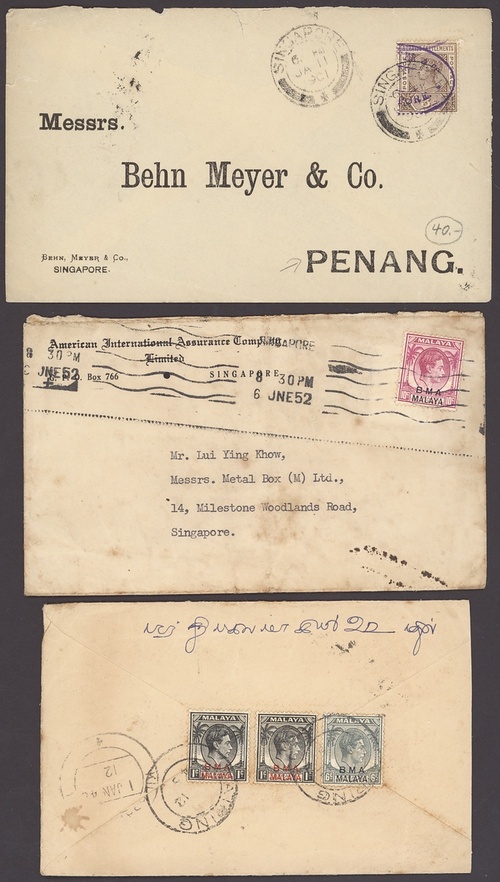 SINGAPORE
JA 11
1901
STRAITS SETTLEMENTS
POSTAGE
SINGAPORE
Messrs.
Behn Meyer & Co.
40.-
BEHN, MEYER & CO.,
SINGAPORE.
PENANG.
American International Assurance Company,
Limited
P. O. Box 766
SINGAPORE
8 30 PM
JNE 52
SINGAPORE
8 30 PM
6 JNE 52
MALAYA
BMA
MALAYA
Mr. Lui Ying Khow,
Messrs. Metal Box (M) Ltd.,
14, Milestone Woodlands Road,
Singapore.
MALAYA
BMA
MALAYA
1c 1c
MALAYA
BMA
MALAYA
1c 1c
MALAYA
BMA
MALAYA
6c 6c
1 JAN 4
12